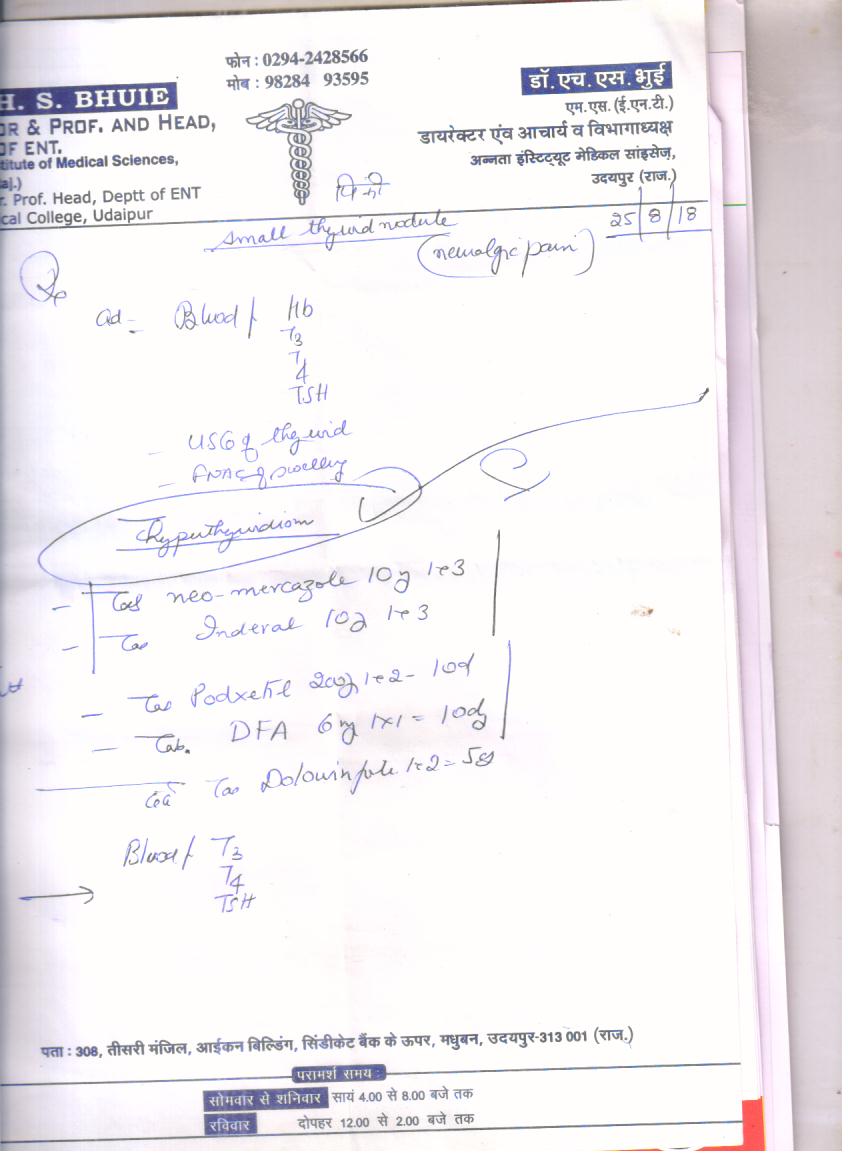 फोन : 0294-2428566
मोब : 98284 93595
H. S. BHUIE
OR & PROF. AND HEAD,
OF ENT.
titute of Medical Sciences,
aj.)
r. Prof. Head, Deptt of ENT
cal College, Udaipur
डॉ. एच. एस. भुई
एम.एस. (ई.एन.टी.)
डायरेक्टर एंव आचार्य व विभागाध्यक्ष
अन्नता इंस्टिट्यूट मेडिकल सांइसेज,
उदयपुर (राज.)
25/8/18
small thyroid nodule
(neuralgic pain)
Ad- Blood/ Hb
T3
T4
TSH
- USG of thyroid
- FNAC of swelling
Thyperthyroidism
- Tab neo-mercazole 10mg 1x3
- Tab Inderal 10mg 1x3
- Tab Podxetil 200mg 1x2 - 10d
- Tab. DFA 6mg 1x1 = 10dy
Tab Dolowin 1x2 = 5dy
Blood/ T3
T4
TSH
पता : 308, तीसरी मंजिल, आईकन बिल्डिंग, सिंडीकेट बैंक के ऊपर, मधुबन, उदयपुर-313 001 (राज.)
परामर्श समय :
सोमवार से शनिवार सायं 4.00 से 8.00 बजे तक
रविवार दोपहर 12.00 से 2.00 बजे तक